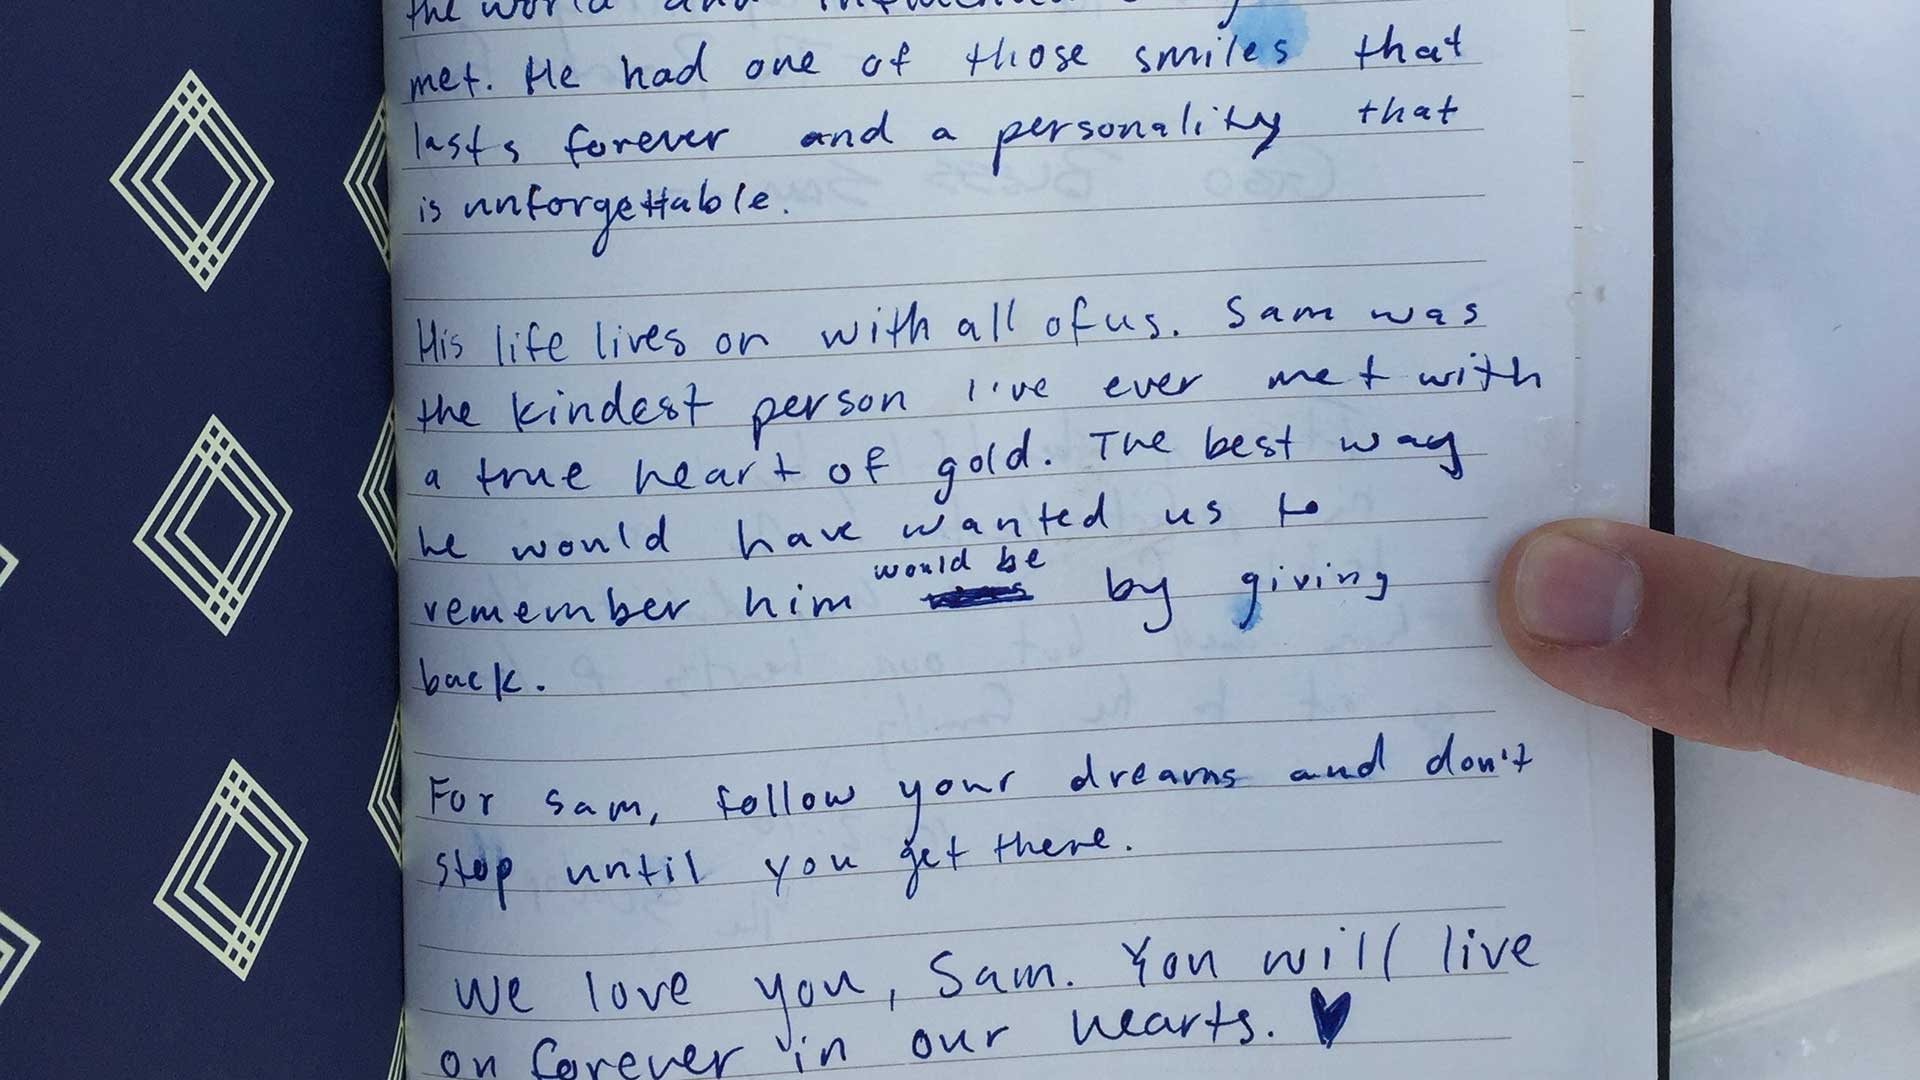 the world and
met. He had one of those smiles that
lasts forever and a personality that
is unforgettable.
His life lives on with all of us. Sam was
the kindest person I've ever met with
a true heart of gold. The best way
he would have wanted us to
remember him would be by giving
back.
For Sam, follow your dreams and don't
stop until you get there.
We love you, Sam. You will live
on forever in our hearts. ♥